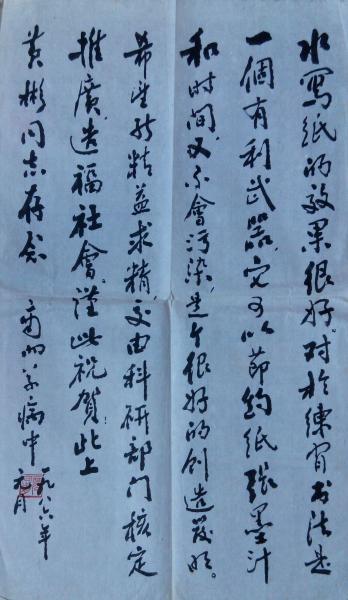 水寫纸的效果很好。对於練習书法是
一個有利武器，它可以节约纸張墨汁
和时间，又不會污染，是个很好的创造發明。
希望能精益求精，交由科研部门核定
推廣，造福社會。谨此祝賀！此上
黄彬同志存念
病中
一九八六年
元月